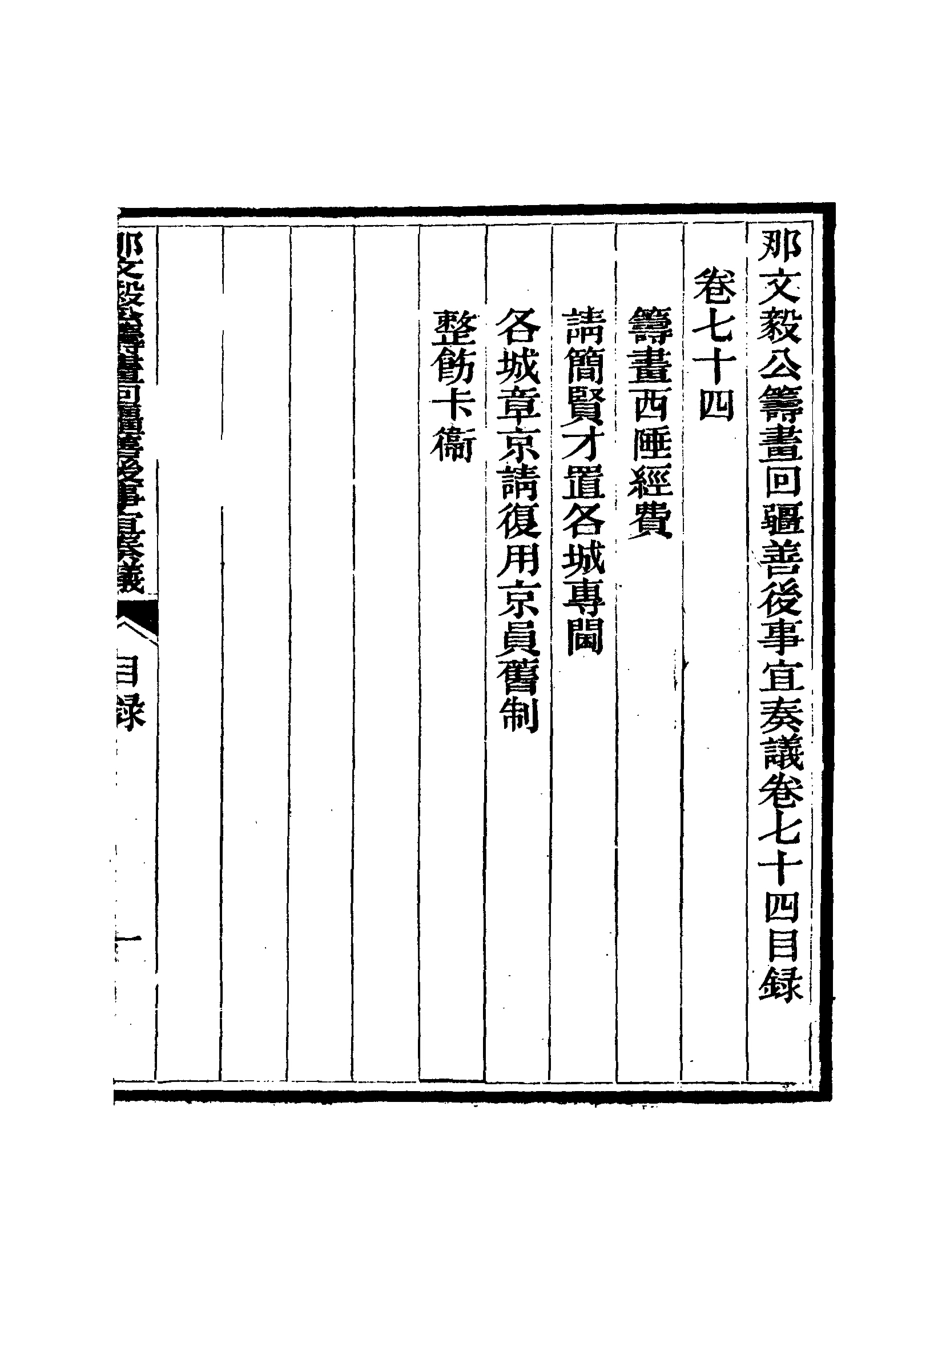 那文毅公籌畫回疆善後事宜奏議卷七十四目録
卷七十四
籌畫西陲經費
請簡賢才置各城專閫
各城章京請復用京員舊制
整飭卡衞
那文毅公籌畫回疆善後事宜奏議
目録
一